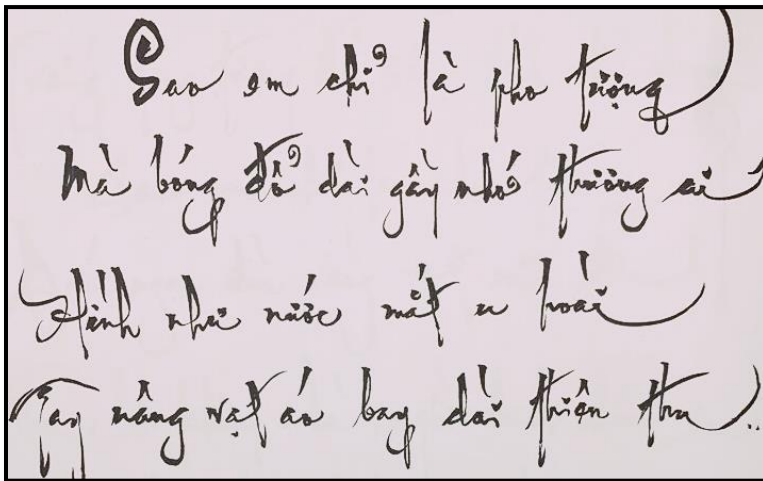 Sao em chỉ là pho tượng
Mà bóng đổ dài gầy nhớ thương ai
Hình như nước mắt u hoài
Tay nâng vạt áo bay dài thiên thu..